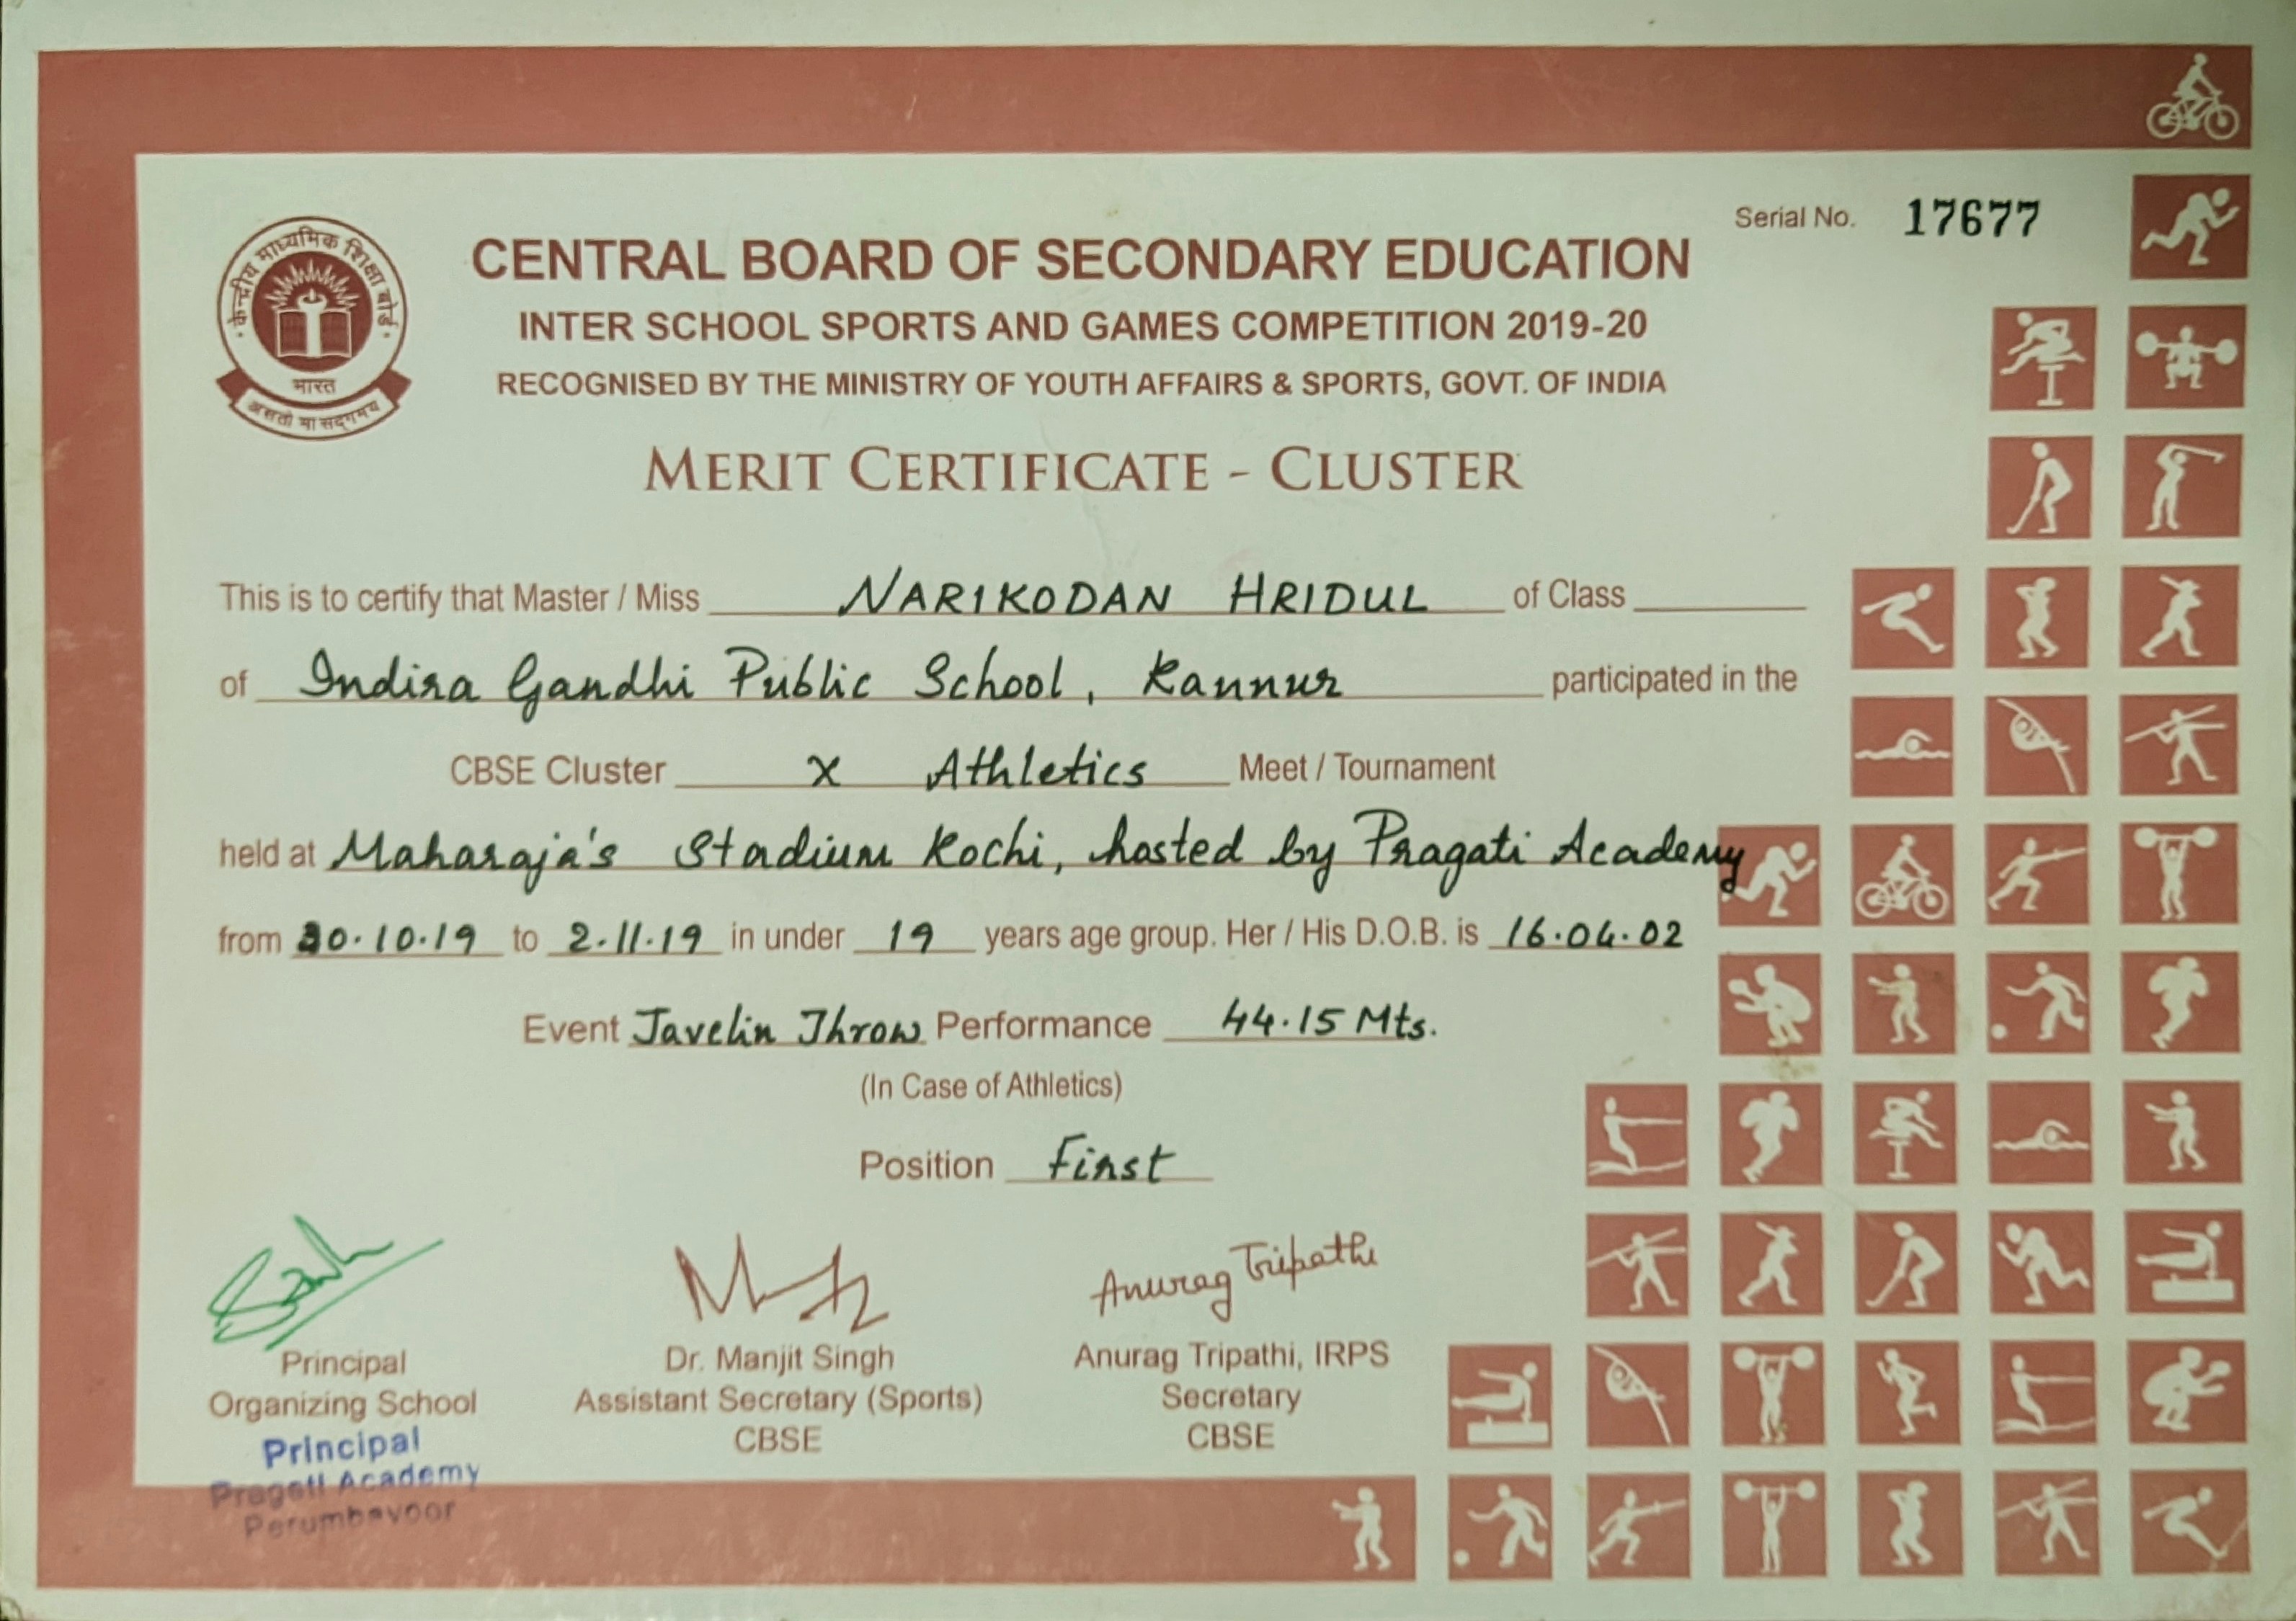 Serial No. 17677
केन्द्रीय माध्यमिक शिक्षा बोर्ड
भारत
असतो मा सद्गमय
CENTRAL BOARD OF SECONDARY EDUCATION
INTER SCHOOL SPORTS AND GAMES COMPETITION 2019-20
RECOGNISED BY THE MINISTRY OF YOUTH AFFAIRS & SPORTS, GOVT. OF INDIA
MERIT CERTIFICATE - CLUSTER
This is to certify that Master / Miss NARIKODAN HRIDUL of Class
of Indira Gandhi Public School, Kannur participated in the
CBSE Cluster X Athletics Meet / Tournament
held at Maharaja's Stadium Kochi, hosted by Pragati Academy
from 30.10.19 to 2.11.19 in under 19 years age group. Her / His D.O.B. is 16.04.02
Event Javelin Throw Performance 44.15 Mts.
(In Case of Athletics)
Position First
Anurag Tripathi
Principal
Organizing School
Principal
Pragati Academy
Perumbavoor
Dr. Manjit Singh
Assistant Secretary (Sports)
CBSE
Anurag Tripathi, IRPS
Secretary
CBSE